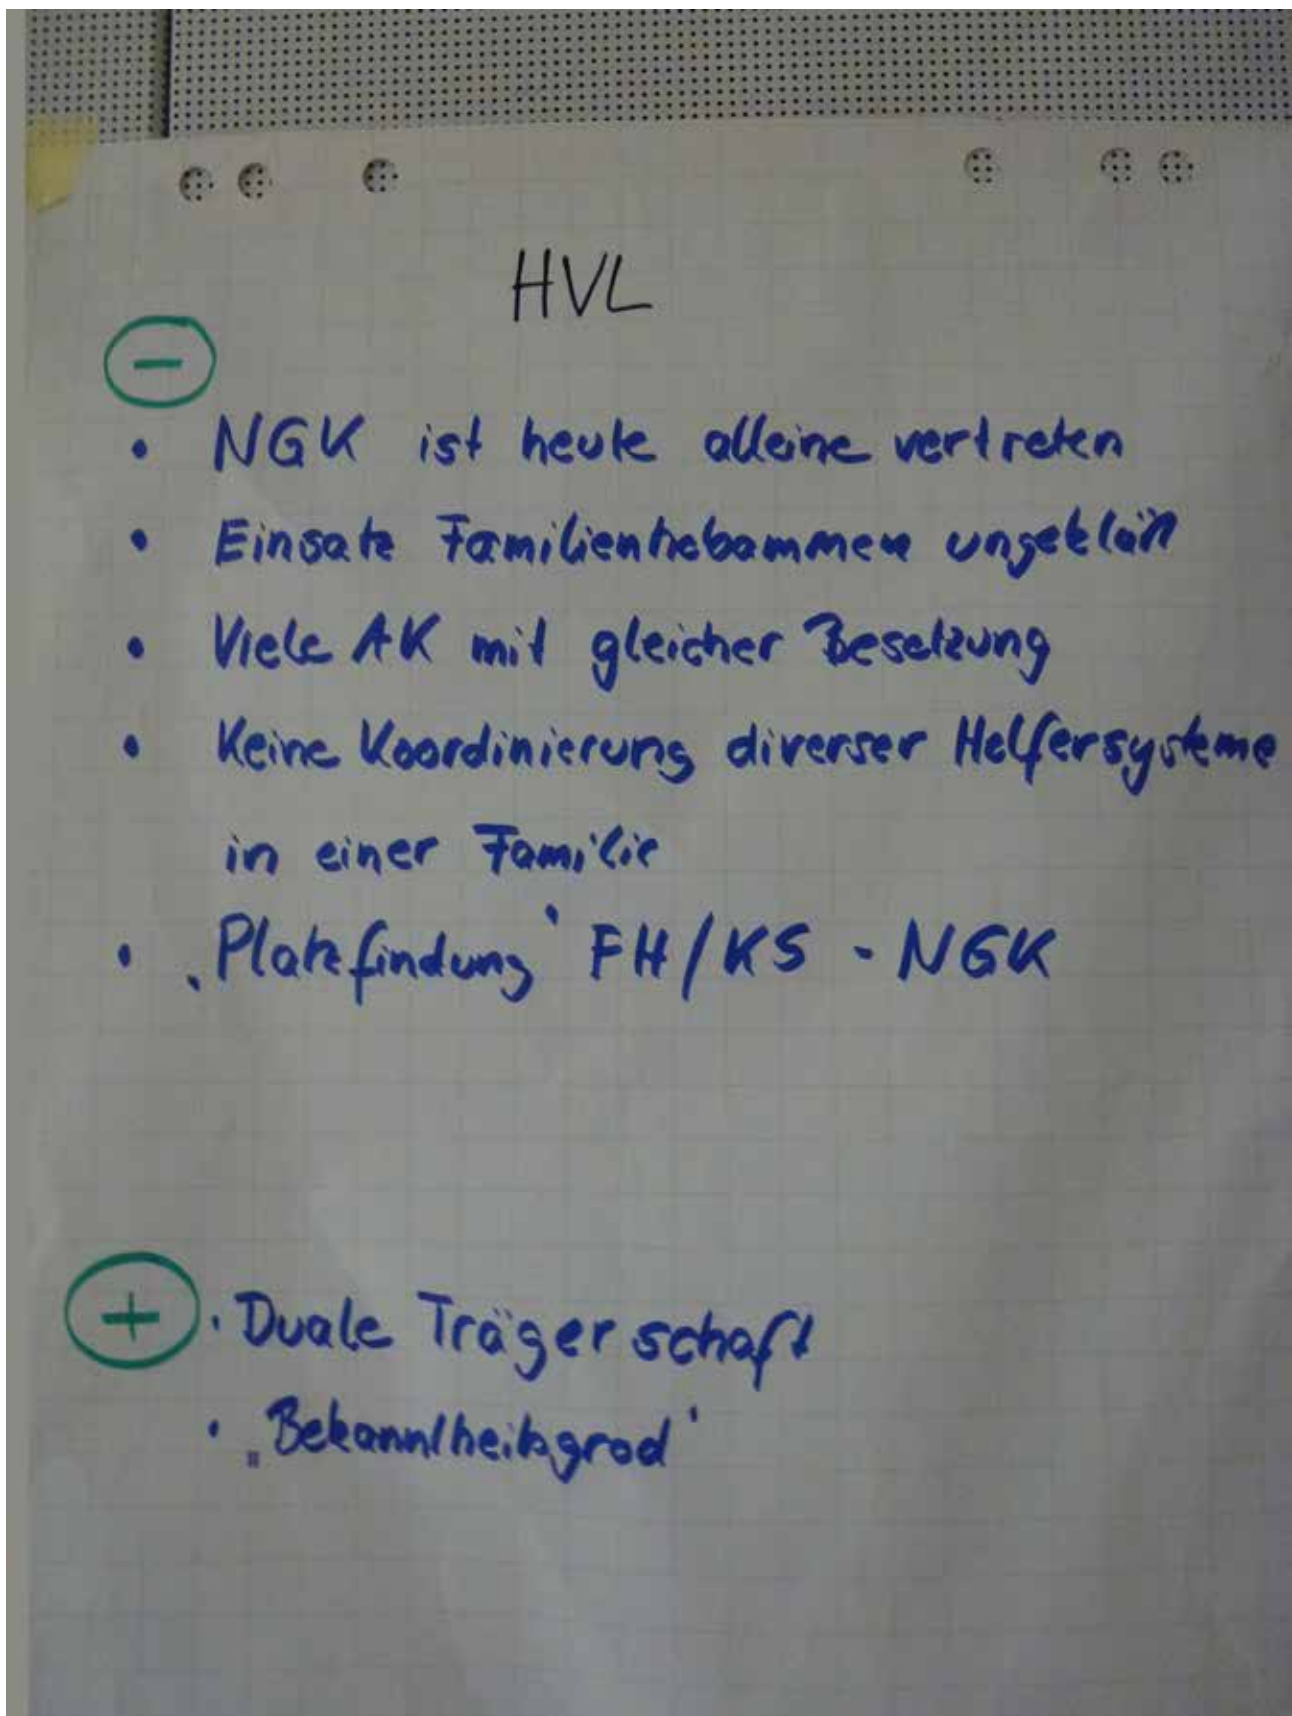 HVL
−
• NGK ist heute alleine vertreten
• Einsatz Familienhebammen ungeklärt
• Viele AK mit gleicher Besetzung
• Keine Koordinierung diverser Helfersysteme
in einer Familie
• „Platzfindung“ FH/KS - NGK
+ • Duale Trägerschaft
• „Bekanntheitsgrad“